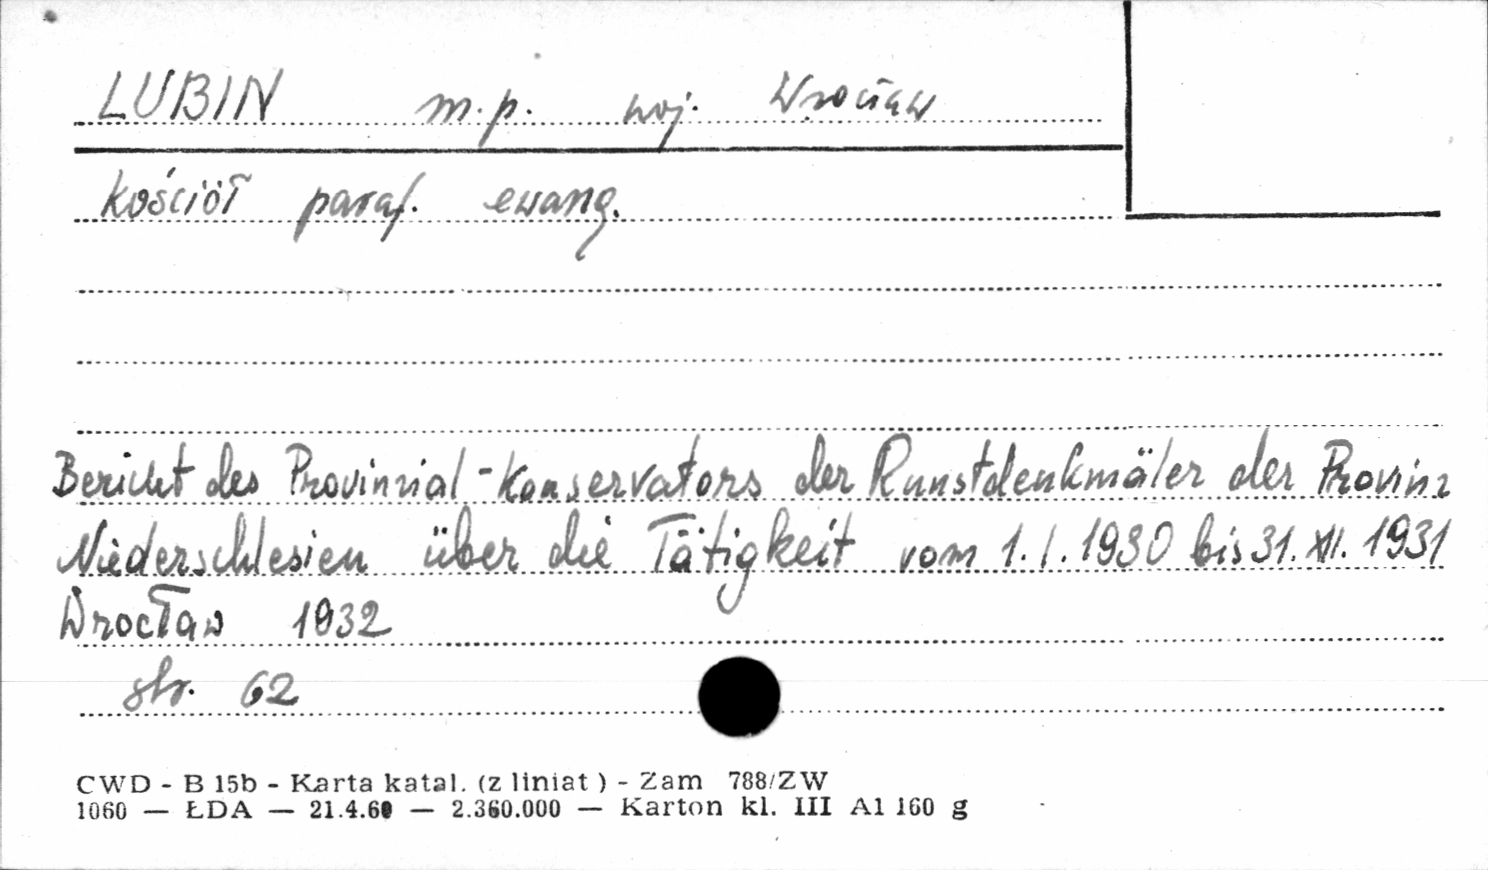 LUBIN m.p. woj. Wrocław
kościół paraf. ewang.
Bericht des Provinzial-Konservators der Kunstdenkmäler der Provinz
Niederschlesien über die Tätigkeit vom 1.I.1930 bis 31.XII.1931
Wrocław 1932
str. 62
CWD - B 15b - Karta katal. (z liniat) - Zam 788/ZW
1060 — ŁDA — 21.4.60 — 2.360.000 — Karton kl. III A1 160 g